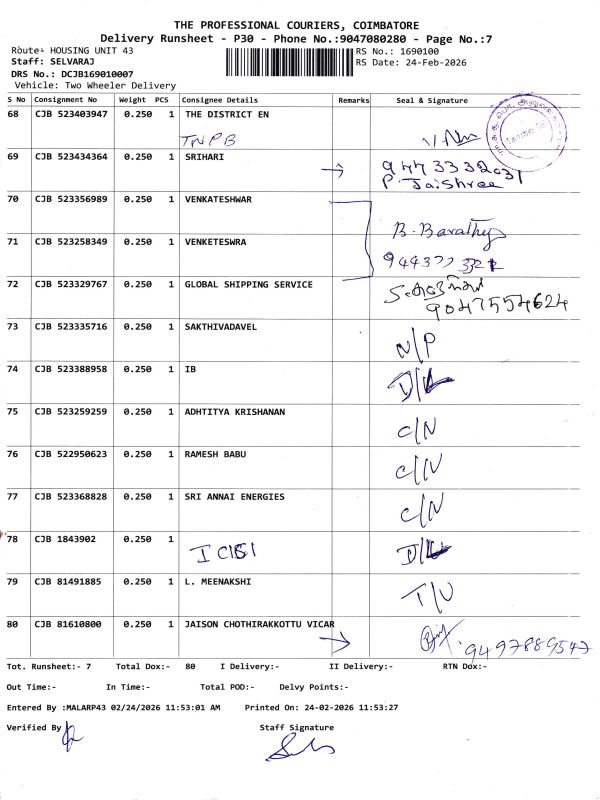 THE PROFESSIONAL COURIERS, COIMBATORE
Delivery Runsheet - P30 - Phone No.:9047080280 - Page No.:7
Route: HOUSING UNIT 43
RS No.: 1690100
Staff: SELVARAJ
RS Date: 24-Feb-2026
DRS No.: DCJB169010007
Vehicle: Two Wheeler Delivery
S No Consignment No Weight PCS Consignee Details Remarks Seal & Signature
68 CJB 523403947 0.250 1 THE DISTRICT EN
TNPB
69 CJB 523434364 0.250 1 SRIHARI
P. Jaishree
70 CJB 523356989 0.250 1 VENKATESHWAR
B. Barathy
71 CJB 523258349 0.250 1 VENKETESWRA
72 CJB 523329767 0.250 1 GLOBAL SHIPPING SERVICE
9047554624
73 CJB 523335716 0.250 1 SAKTHIVADAVEL
N/P
74 CJB 523388958 0.250 1 IB
D/L
75 CJB 523259259 0.250 1 ADHTITYA KRISHANAN
C/N
76 CJB 522950623 0.250 1 RAMESH BABU
C/N
77 CJB 523368828 0.250 1 SRI ANNAI ENERGIES
C/N
78 CJB 1843902 0.250 1
D/L
79 CJB 81491885 0.250 1 L. MEENAKSHI
80 CJB 81610800 0.250 1 JAISON CHOTHIRAKKOTTU VICAR
9497889547
Tot. Runsheet:- 7 Total Dox:- 80 I Delivery:- II Delivery:- RTN Dox:-
Out Time:- In Time:- Total POD:- Delvy Points:-
Entered By :MALARP43 02/24/2026 11:53:01 AM Printed On: 24-02-2026 11:53:27
Verified By Staff Signature